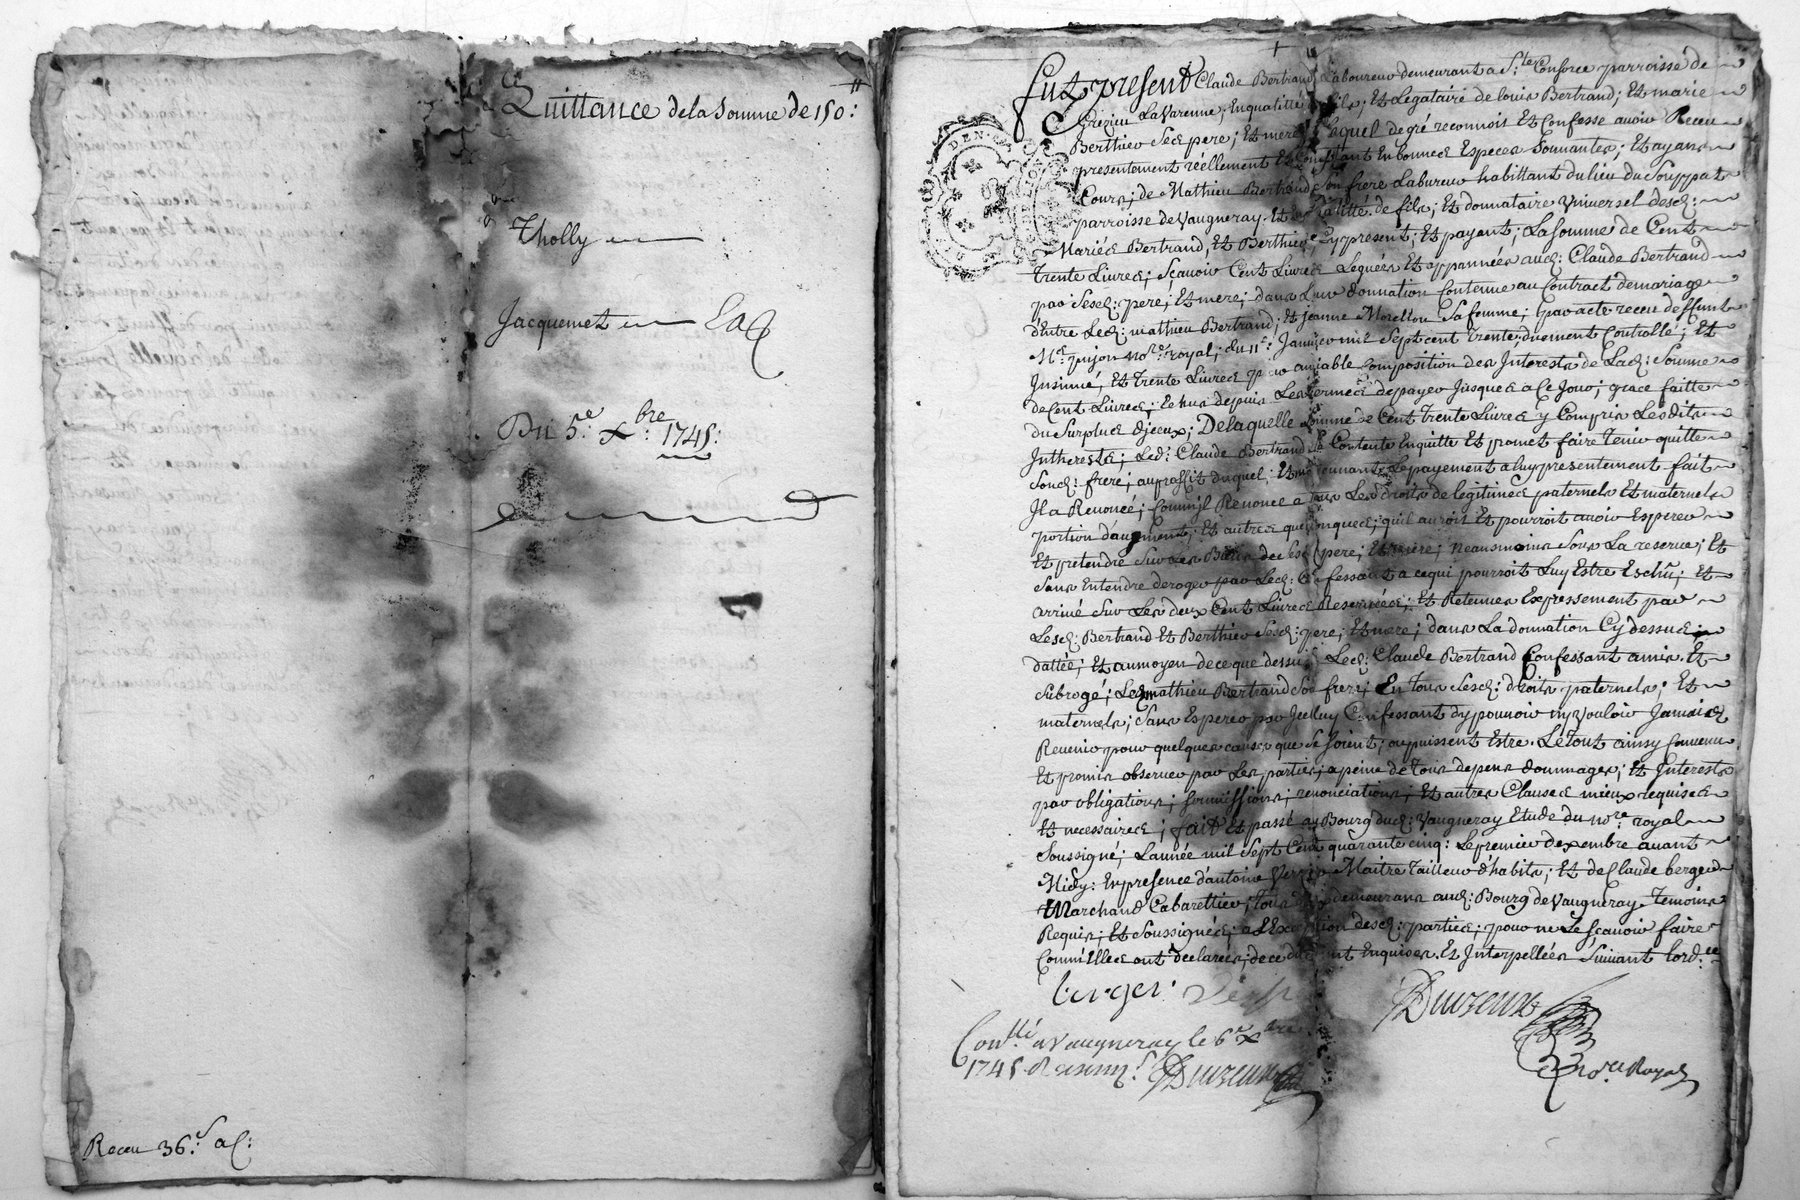 Quittance de la Somme de 150:ᴴ
Tholly
Jacquemet
Du 5.e xbre: 1745:
Receu 36.s
Fut present Claude Bertrand Laboureur demeurant a S.te Consorce parroisse de
Grezieu La Varenne, En qualitté de fils; Et Legataire de louis Bertrand; Et marie
Berthier Ses pere; Et mere Lequel de gré reconnoit Et Confesse avoir Receu
presentement réellement Et Comptant En bonnes Especes Sonnantes; Et ayans
Cours; de Mathieu Bertrand Son frere Laboureur habittant du lieu du Souppat
parroisse de Vaugneray Et en qualitté de fils; Et donnataire Universel desd:
Mariés Bertrand, Et Berthier Cy present; Et payant; La Somme de Cent
Trente Livres; Scavoir Cent Livres Leguées Et appannées aud: Claude Bertrand
par Sesd: pere; Et mere; dans Leur donnation Contenue au Contract de mariage
d'Entre Led: mathieu Bertrand; Et jeanne Morellon Sa femme; par acte receu deffunt
M.e pijon no.re royal; du 11.e Janvier mil Sept cent Trente, duement Controllé; Et
Insinué, Et Trente Livres par amiable Composition des Interests de Lad: Somme
de Cent Livres; Echus depuis Les termes de payer Jusques a Ce Jour; grace faitte
du Surplus d'jceux; De laquelle Somme de Cent Trente Livres y Compris Lesdits
Intherests; Led: Claude Bertrand Se Contente Enquitte Et promet faire Tenir quitte
Sond: frere; au proffit duquel; Et moyennant Le payement a luy presentement fait
Il a Renoncé; Comm'jl Renonce a Tous Les droits de legitimes paternels Et maternels
portion d'augment; Et autres quelconques; qu'il auroit Et pourroit avoir Esperer
Et pretendre Sur Les Biens de Sesd pere; Et mere; neansmoins Sous La reserve; Et
Sans Entendre deroger par Led: Confessant a ce qui pourroit Luy Estre Eschu; Et
arrivé Sur Les deux Cent Livres Reservées; Et Retenues Expressement par
Lesd: Bertrand Et Berthier Sesd: pere; Et mere; dans La donnation Cy dessus
dattée; Et au moyen de ce que dessus Led: Claude Bertrand Confessant a mis Et
Subrogé; Led mathieu Bertrand Son frere; En Tous Sesd: droits paternels; Et
maternels; Sans Esperer par Jcelluy Confessant d'y pouvoir ny Vouloir Jamais
Revenir pour quelques causes que Se Soient; ou puissent Estre. Le Tout ainsy Convenu
Et promis observer par Les parties; a peine de Tous depens dommages; Et Interests
par obligations; Soumissions; renonciations; Et autres Clauses mieux requises
Et necessaires; fait Et passé au Bourg dud: Vaugneray Etude du no.re royal
Soussigné; L'année mil Sept Cent quarante cinq: Le premier dexembre avant
Midy: En presence d'antoine Maitre Tailleur d'habits; Et de Claude berger
Marchand Cabarettier; Tous demeurans aud: Bourg de Vaugneray Temoins
Requis; Et Soussignés; a L'Exception desd: parties; pour ne Le Scavoir faire
Comm'Elles ont declarées; de ce duement Enquises. Et Interpellées Suivant l'ord.ce
berger
no.re Royal
Con.llé a Vaugneray le 6.e xbre
1745